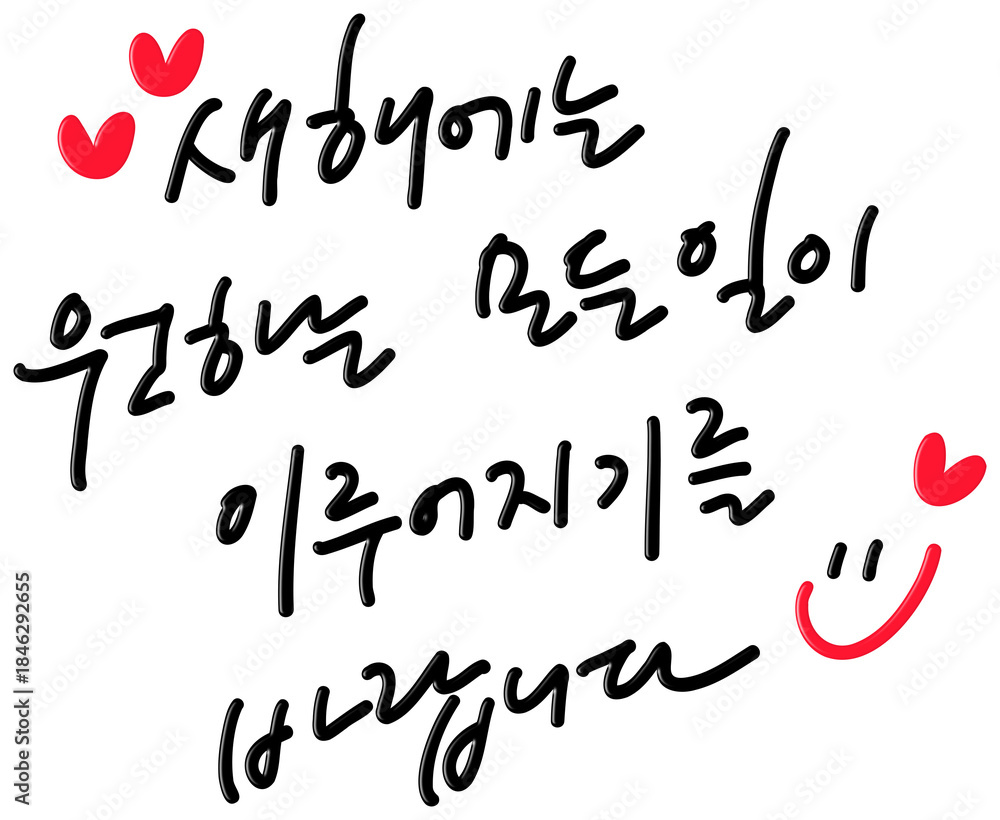 새해에는
원하는 모든 일이
이루어지기를
바랍니다
Adobe Stock | #1846292655